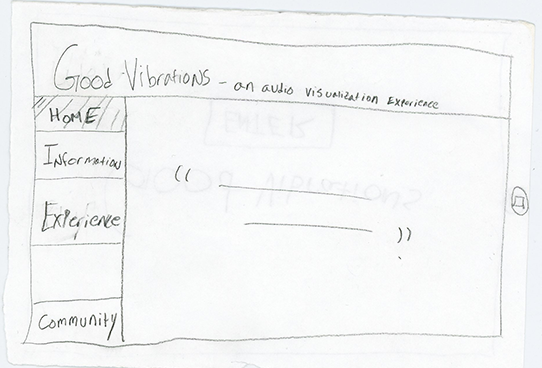 Good Vibrations - an audio visualization Experience
HOME
Information
Experience
Community
((
))
ENTER
Good Vibrations